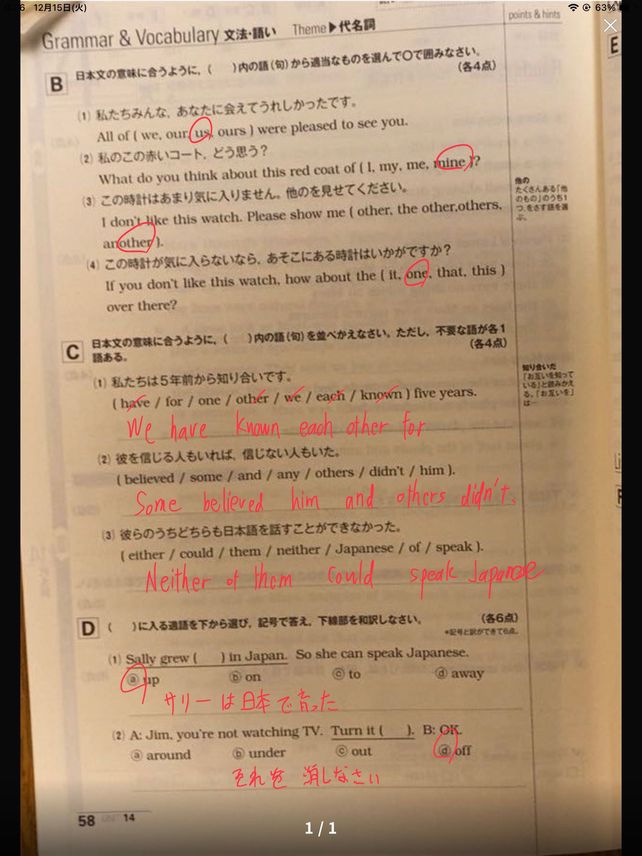 12月15日(火)
63%
Grammar & Vocabulary 文法・語い Theme▶代名詞
points & hints
B 日本文の意味に合うように，( )内の語(句)から適当なものを選んで○で囲みなさい。
(各4点)
(1) 私たちみんな，あなたに会えてうれしかったです。
All of ( we, our, us, ours ) were pleased to see you.
(2) 私のこの赤いコート，どう思う？
What do you think about this red coat of ( I, my, me, mine )?
(3) この時計はあまり気に入りません。他のを見せてください。
I don't like this watch. Please show me ( other, the other, others,
another ).
他の
たくさんある「他
のもの」のうち1
つ，をさす語を選
ぶ。
(4) この時計が気に入らないなら，あそこにある時計はいかがですか？
If you don't like this watch, how about the ( it, one, that, this )
over there?
C 日本文の意味に合うように，( )内の語(句)を並べかえなさい。ただし，不要な語が各1
語ある。
(各4点)
(1) 私たちは5年前から知り合いです。
( have / for / one / other / we / each / known ) five years.
We have known each other for
知り合いだ
「お互いを知って
いる」と読みかえ
る。「お互いを」
は…
(2) 彼を信じる人もいれば，信じない人もいた。
( believed / some / and / any / others / didn't / him ).
Some believed him and others didn't.
(3) 彼らのうちどちらも日本語を話すことができなかった。
( either / could / them / neither / Japanese / of / speak ).
Neither of them could speak Japanese
D ( )に入る適語を下から選び，記号で答え，下線部を和訳しなさい。
(各6点)
*記号と訳ができて6点。
(1) Sally grew ( ) in Japan. So she can speak Japanese.
ⓐ up ⓑ on ⓒ to ⓓ away
サリーは日本で育った
(2) A: Jim, you're not watching TV. Turn it ( ). B: OK.
ⓐ around ⓑ under ⓒ out ⓓ off
それを消しなさい
58 UNIT 14
1 / 1